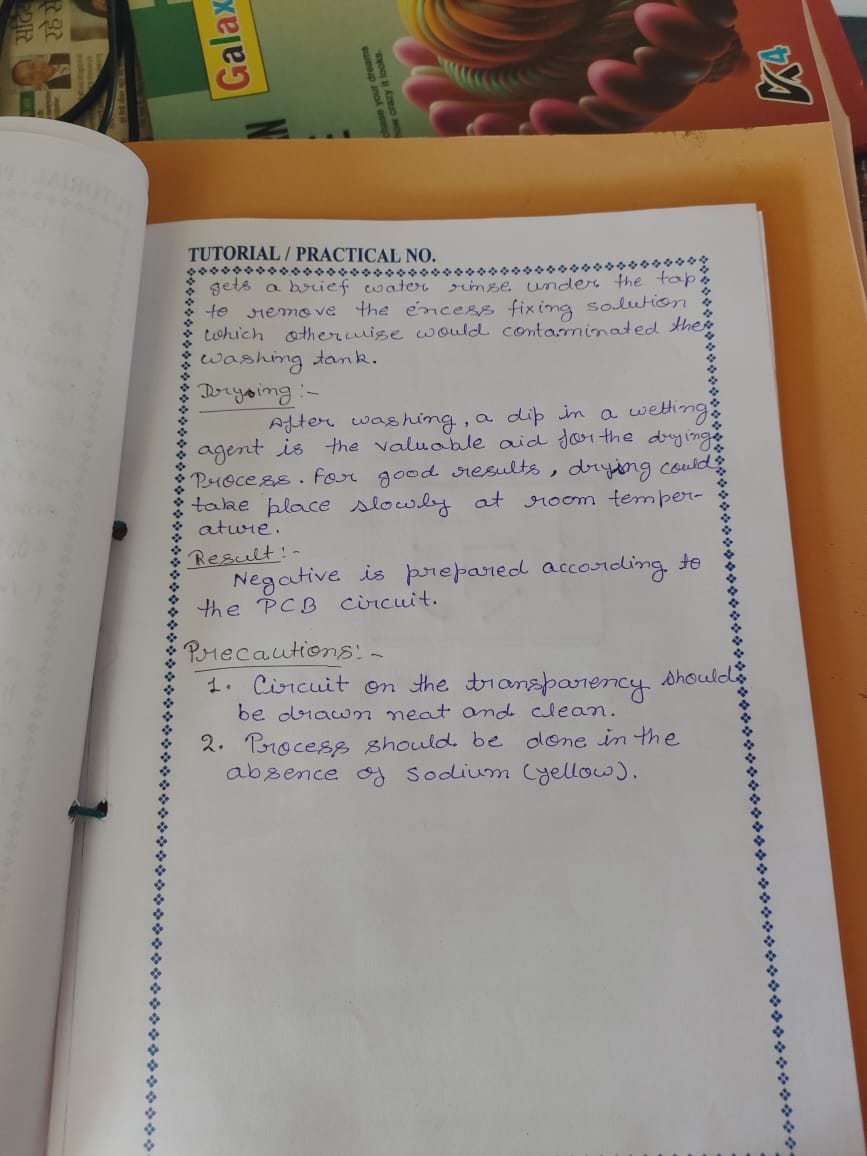 सदि
रहे स
Galax
chase your dreams
how crazy it looks.
K4
TUTORIAL / PRACTICAL NO.
gets a brief water rinse under the tap
to remove the encess fixing solution
which otherwise would contaminated the
washing tank.
Drying :-
After washing, a dip in a wetting
agent is the valuable aid for the drying
Process. For good results, drying could
take place slowly at room temper-
ature.
Result :-
Negative is prepared according to
the PCB circuit.
Precautions :-
1. Circuit on the transparency should
be drawn neat and clean.
2. Process should be done in the
absence of sodium (yellow).